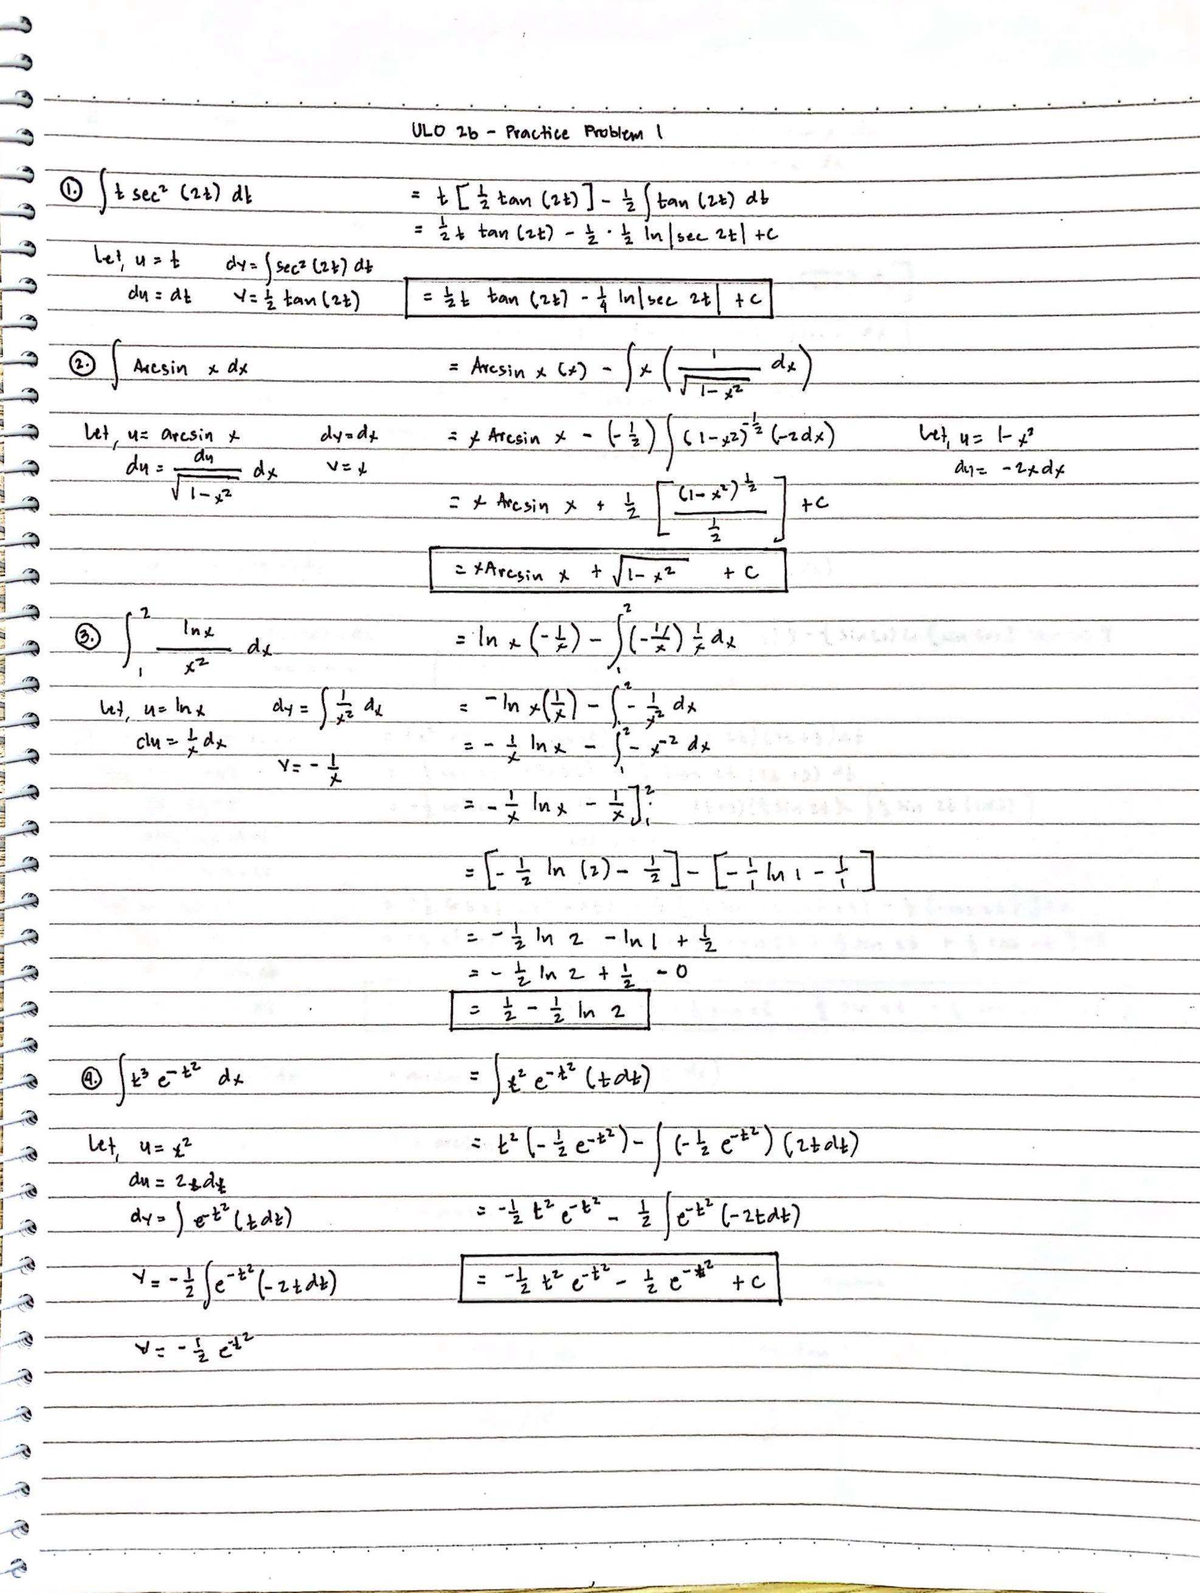 ULO 2b - Practice Problem 1
1. ∫ t sec² (2t) dt
= t [½ tan (2t)] - ½ ∫ tan (2t) dt
= ½ t tan (2t) - ½ · ½ ln |sec 2t| + C
Let, u = t dv = ∫ sec² (2t) dt
du = dt v = ½ tan (2t)
= ½ t tan (2t) - ¼ ln |sec 2t| + C
2. ∫ Arcsin x dx
= Arcsin x (x) - ∫ x (1/√(1-x²) dx)
Let, u = arcsin x dv = dx
du = du/√(1-x²) dx v = x
= x Arcsin x - (-½) ∫ (1-x²)^(-½) (-2dx)
Let, u = 1-x²
du = -2xdx
= x Arcsin x + ½ [(1-x²)^½ / ½] + C
= x Arcsin x + √(1-x²) + C
3. ∫₁² ln x / x² dx
= ln x (-1/x) - ∫₁² (-1/x) 1/x dx
Let, u = ln x dv = ∫ 1/x² dx
du = 1/x dx
v = -1/x
= -ln x (1/x) - ∫₁² - 1/x² dx
= - 1/x ln x - ∫₁² - x⁻² dx
= - 1/x ln x - 1/x ]₁²
= [- ½ ln (2) - ½] - [- 1/1 ln 1 - 1/1]
= - ½ ln 2 - ln 1 + ½
= - ½ ln 2 + ½ - 0
= ½ - ½ ln 2
4. ∫ t³ e^(-t²) dx
= ∫ t² e^(-t²) (t dt)
Let, u = t²
du = 2t dt
dv = ∫ e^(-t²) (t dt)
v = -½ ∫ e^(-t²) (-2t dt)
v = -½ e^(-t²)
= t² (-½ e^(-t²)) - ∫ (-½ e^(-t²)) (2t dt)
= -½ t² e^(-t²) - ½ ∫ e^(-t²) (-2t dt)
= -½ t² e^(-t²) - ½ e^(-t²) + C